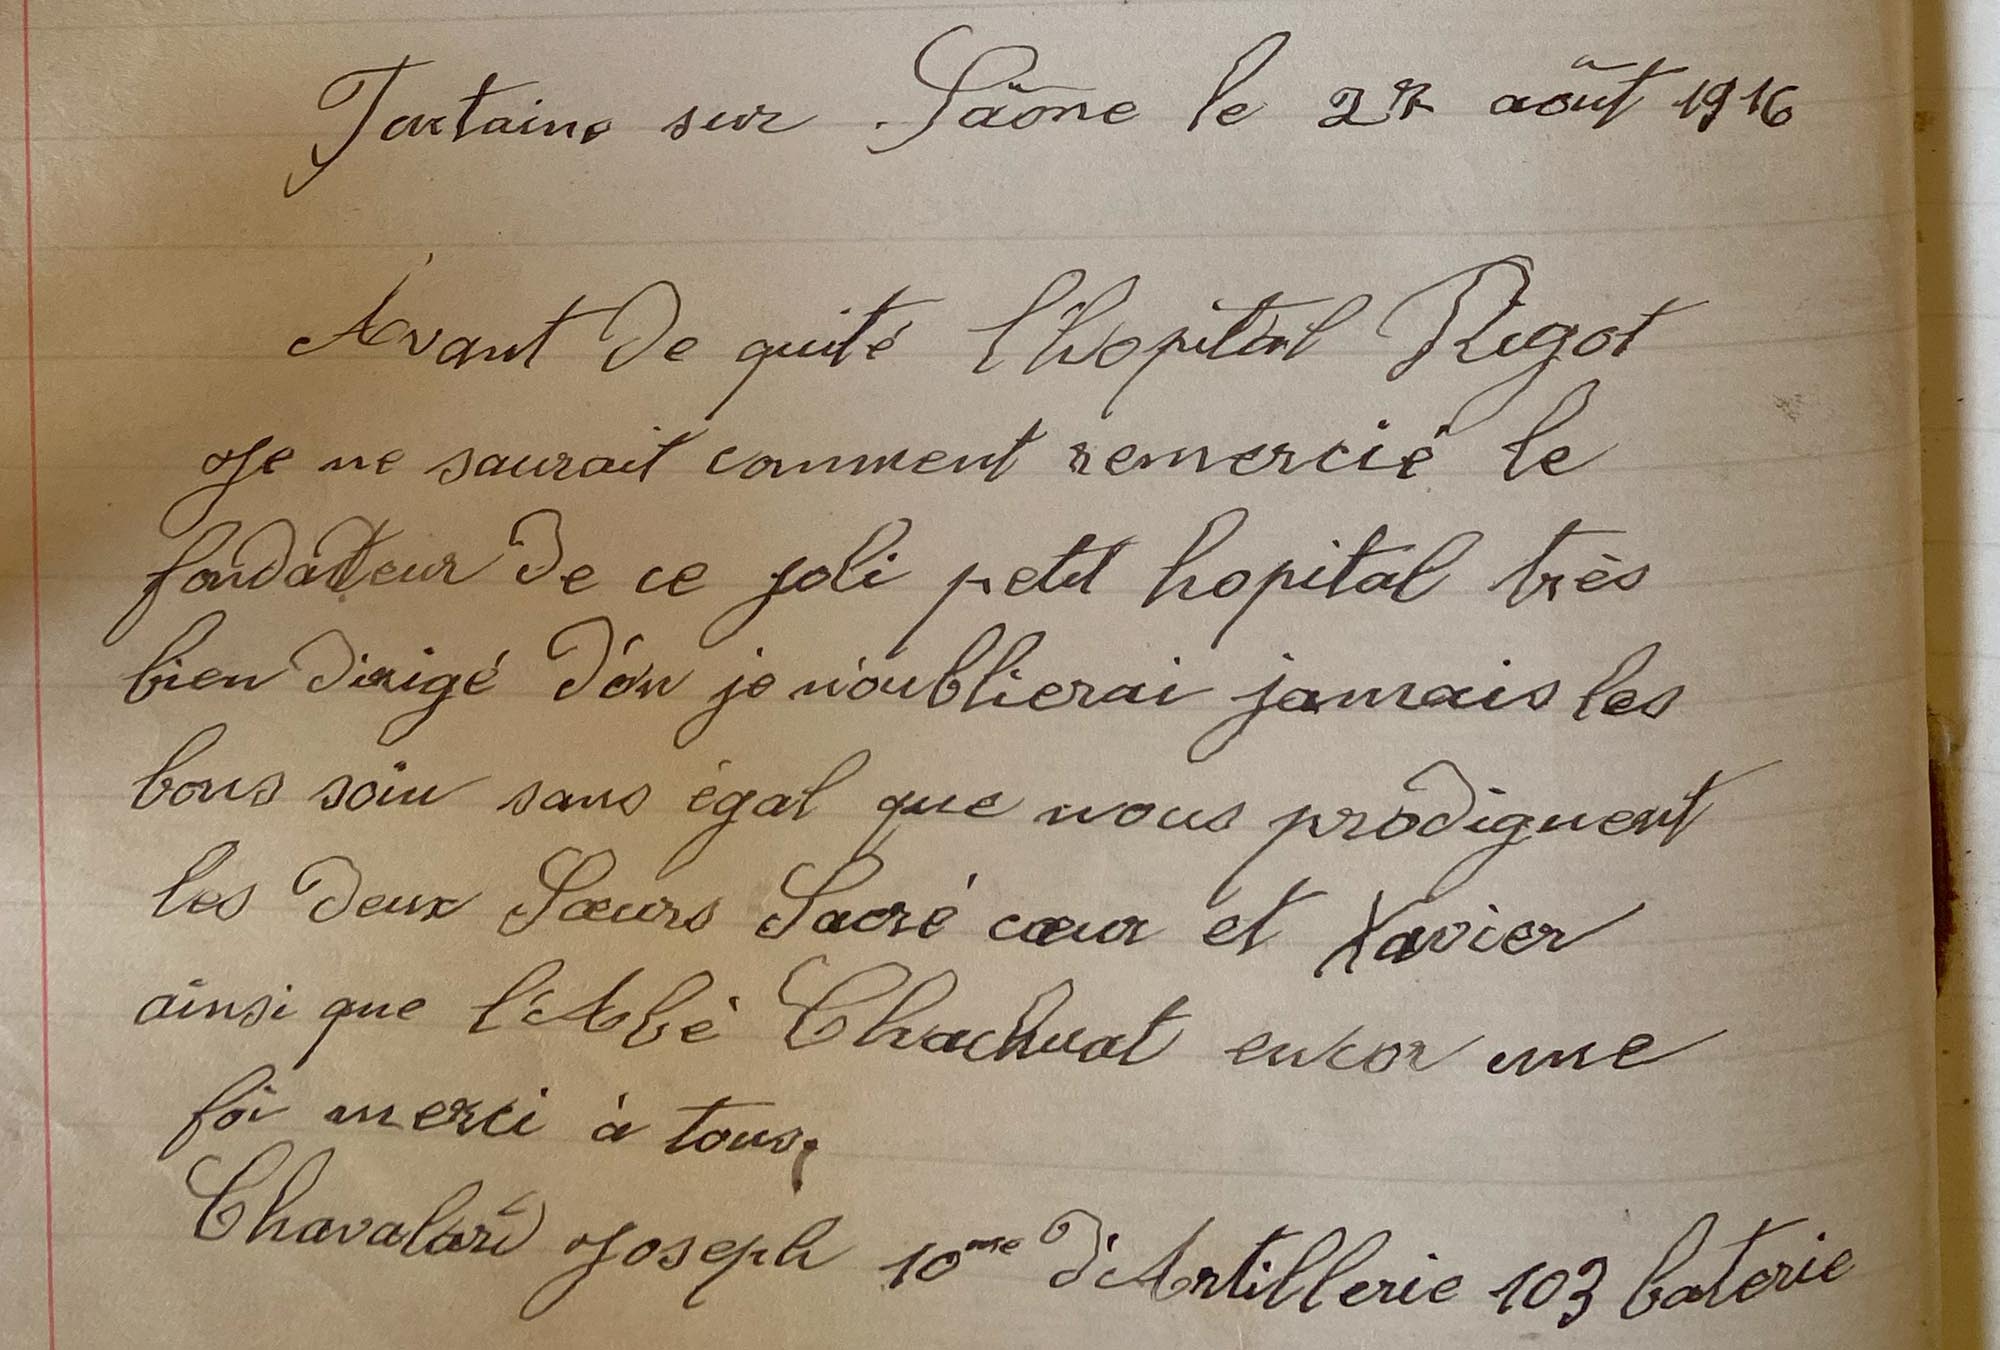 Fontaine sur Saône le 27 août 1916
Avant de quité l'hopital Rigot
Je ne saurait comment remercié le
fondateur de ce joli petit hopital très
bien dirigé d'on je n'oublierai jamais les
bons soin sans égal que nous prodiguent
les deux Sœurs Sacré cœur et Xavier
ainsi que l'Abé Chachuat encor une
foi merci à tous,
Joseph 10me d'Artillerie 103 baterie